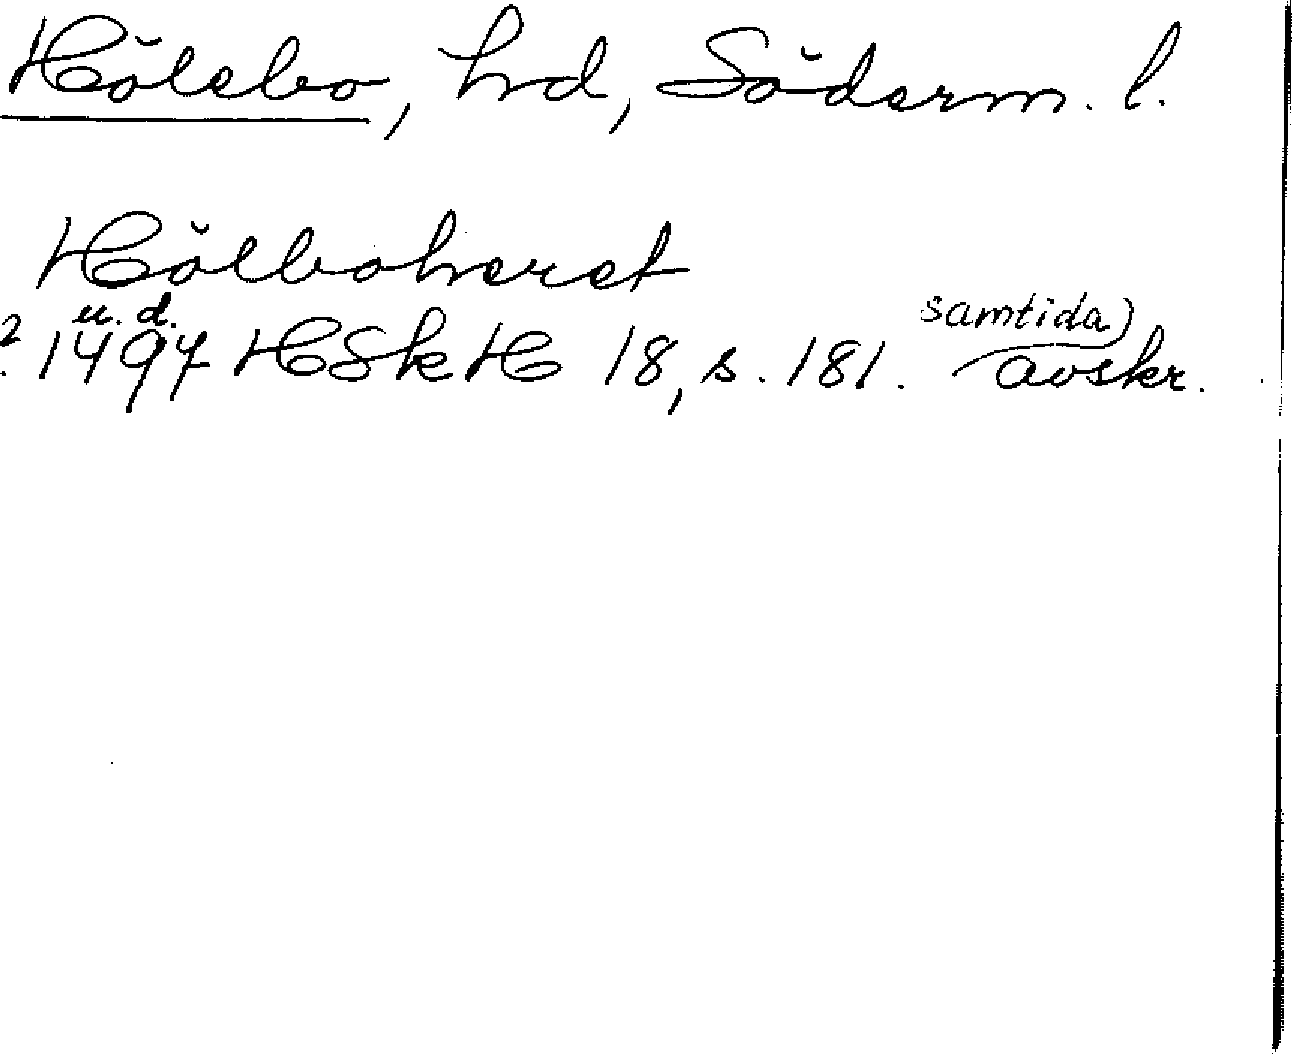 Hölebo, hd, Söderm. l.
Hölboheret
u. d.
1497 HSkH 18, s. 181. samtida) avskr.